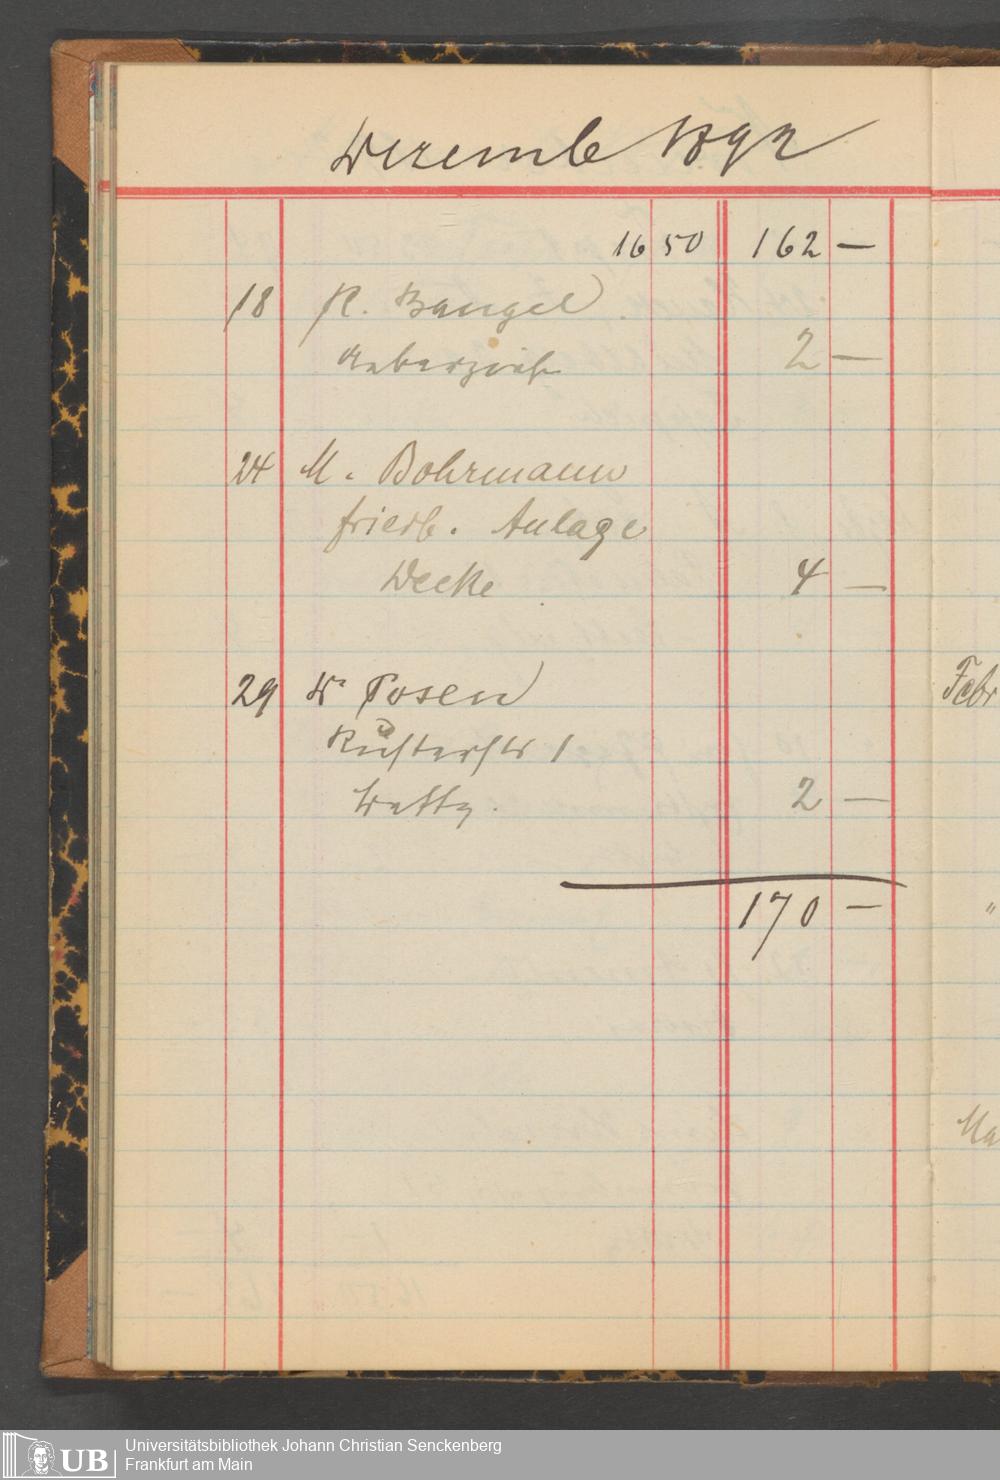 Dezemb 1892
16 50 162 —
18 R. Bangel
Ueberzieh 2 —
24 M. Bohrmann
friedb. Anlage
Decke 4 —
29 Dr Posen
Küsterstr 1
2 —
170 —
Febr
"
Ma
UB
Universitätsbibliothek Johann Christian Senckenberg
Frankfurt am Main